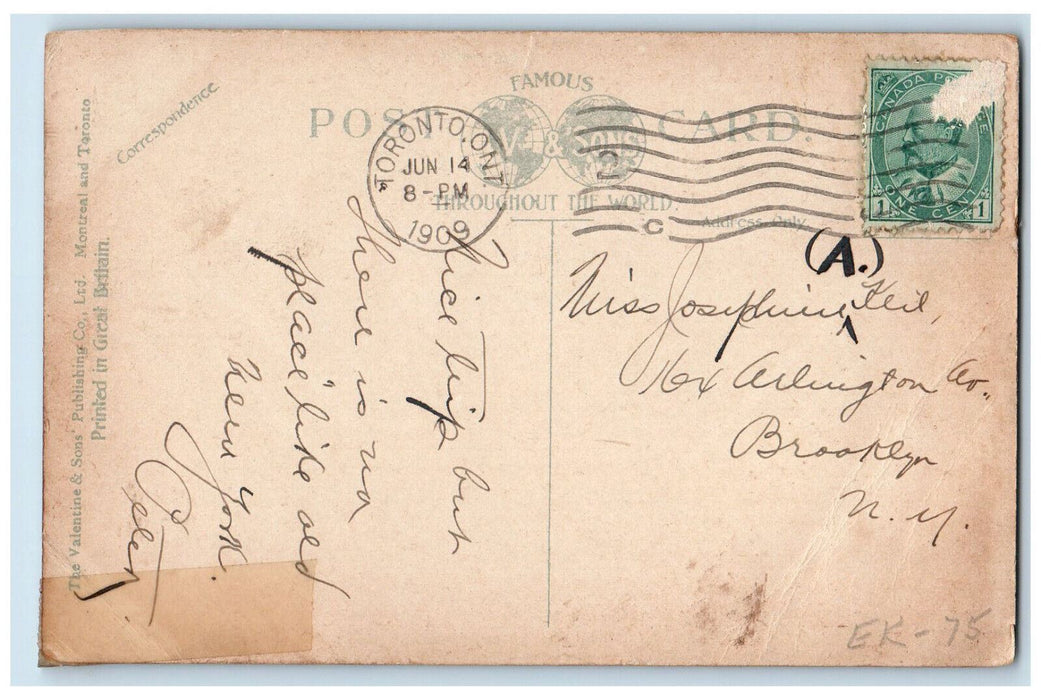 FAMOUS
POST CARD.
V. & SONS
THROUGHOUT THE WORLD.
Correspondence
Address Only
The Valentine & Sons' Publishing Co., Ltd. Montreal and Toronto
Printed in Great Britain.
TORONTO, ONT.
JUN 14
8-PM
1909
C
CANADA POSTAGE
1 ONE CENT 1
Nice trip but
there is no
place like old
New York.
(A.)
Miss Josephine Keil,
Arlington Av.,
Brooklyn
N.Y.
EK-75